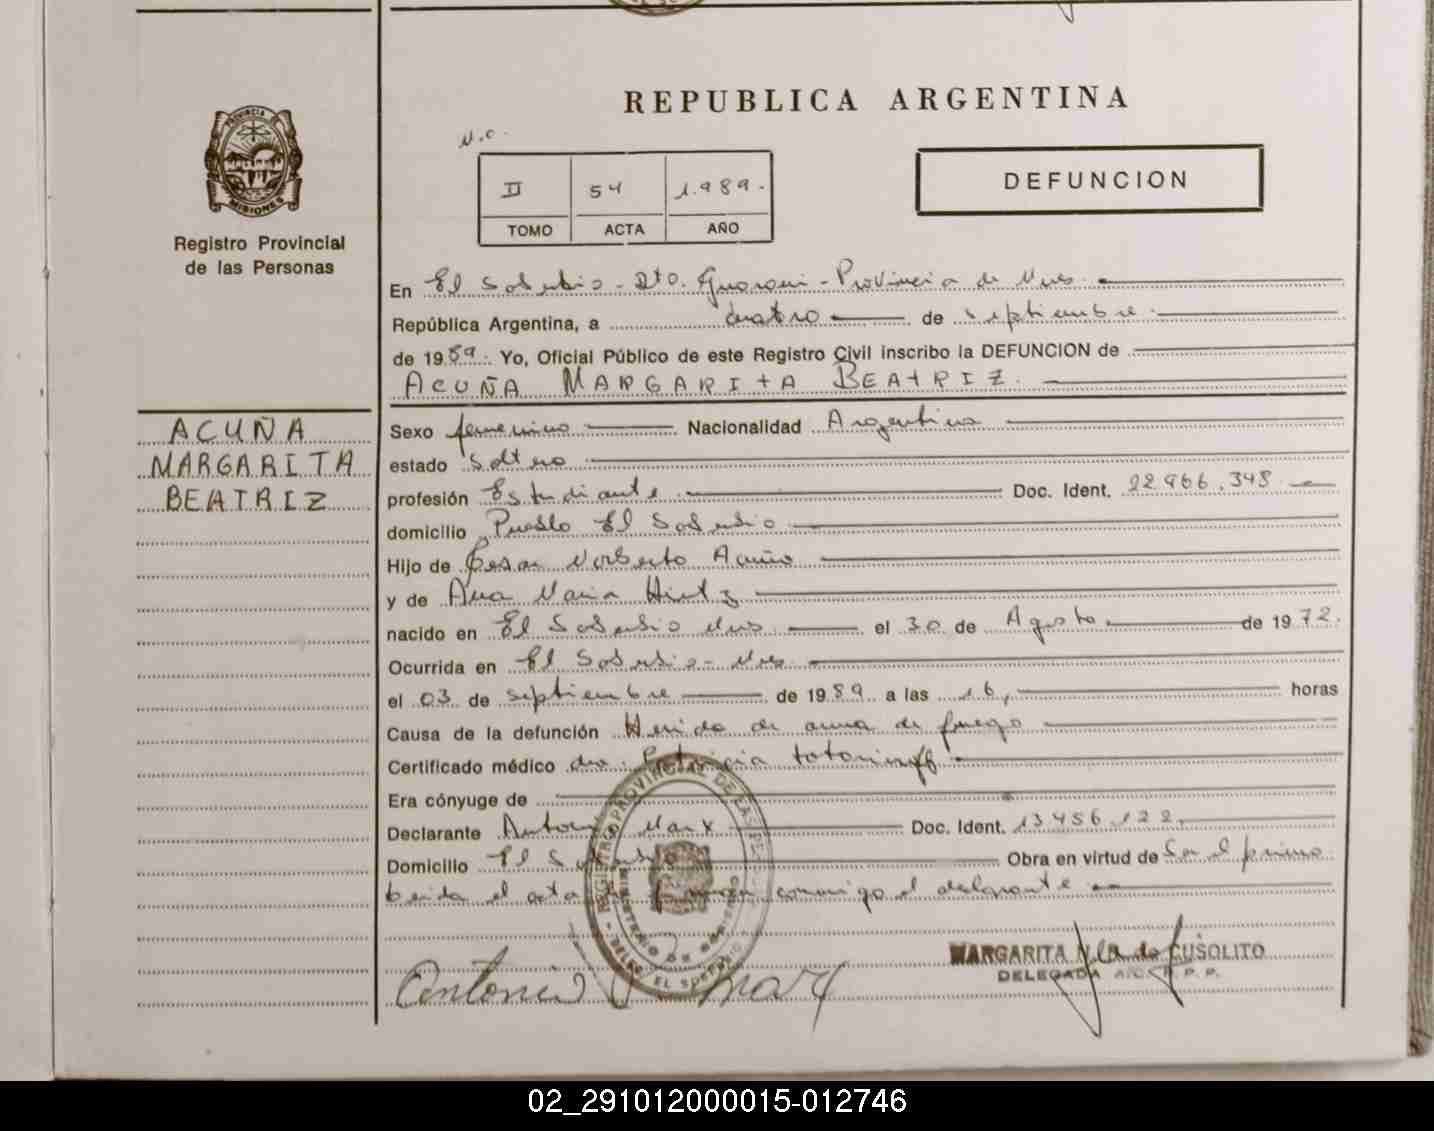 REPUBLICA ARGENTINA
N.C.
II 54 1.989.-
TOMO ACTA AÑO
DEFUNCION
PROVINCIA DE
MISIONES
Registro Provincial
de las Personas
En El Soberbio - Dto. Guarani - Provincia de Mnes.
República Argentina, a cuatro de septiembre
de 1989. Yo, Oficial Público de este Registro Civil inscribo la DEFUNCION de
ACUÑA MARGARITA BEATRIZ.
ACUÑA
MARGARITA
BEATRIZ
Sexo femenino Nacionalidad Argentina
estado Soltera
profesión Estudiante Doc. Ident. 22.966.348
domicilio Pueblo El Soberbio
Hijo de Cesar Norberto Acuña
y de Ana Maria Hintz
nacido en El Soberbio Mnes el 30 de Agosto de 1972.
Ocurrida en El Soberbio - Mnes
el 03 de septiembre de 1989 a las 16, horas
Causa de la defunción Herida de arma de fuego
Certificado médico dra. Patricia
Era cónyuge de
Declarante Antonio Marx Doc. Ident. 13456.122,
Domicilio El Soberbio Obra en virtud de
el acta conmigo el
Antonio Marx
MARGARITA N. de CUSOLITO
DELEGADA R.P.P.
REGISTRO PROVINCIAL DE LAS PE
EL SOBERBIO
02_291012000015-012746